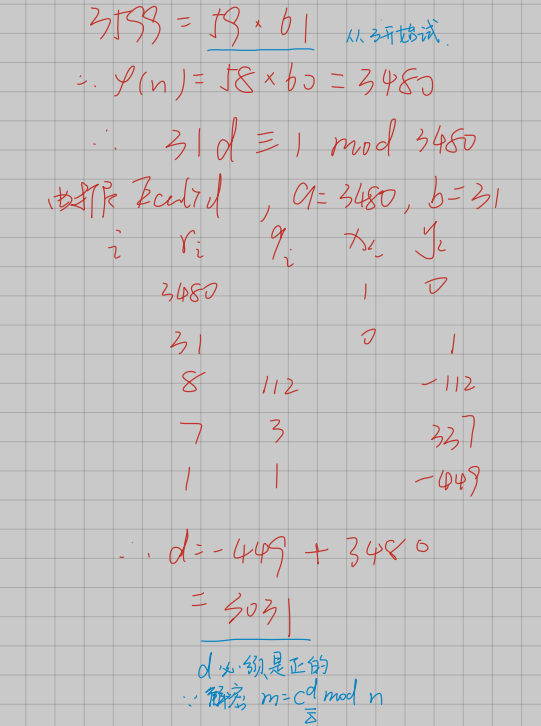 3599 = 59 × 61 从3开始试.
∴ φ(n) = 58 × 60 = 3480
∴ 31d ≡ 1 mod 3480
由扩展 Euclid , a = 3480, b = 31
i ri qi xi yi
3480 1 0
31 0 1
8 112 -112
7 3 337
1 1 -449
∴ d = -449 + 3480
= 3031
d必须是正的
∵ 解密 m = c^d mod n